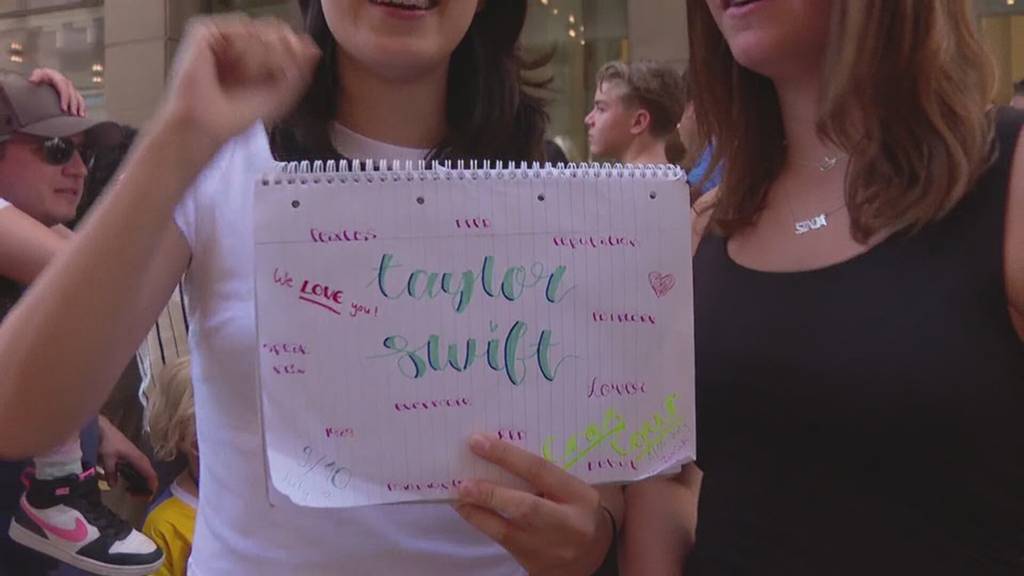 Fearless
RED
reputation
We LOVE you!
taylor
swift
folklore
speak
now
Lover
evermore
1989
RED
Eras Tour
Debut
9/10